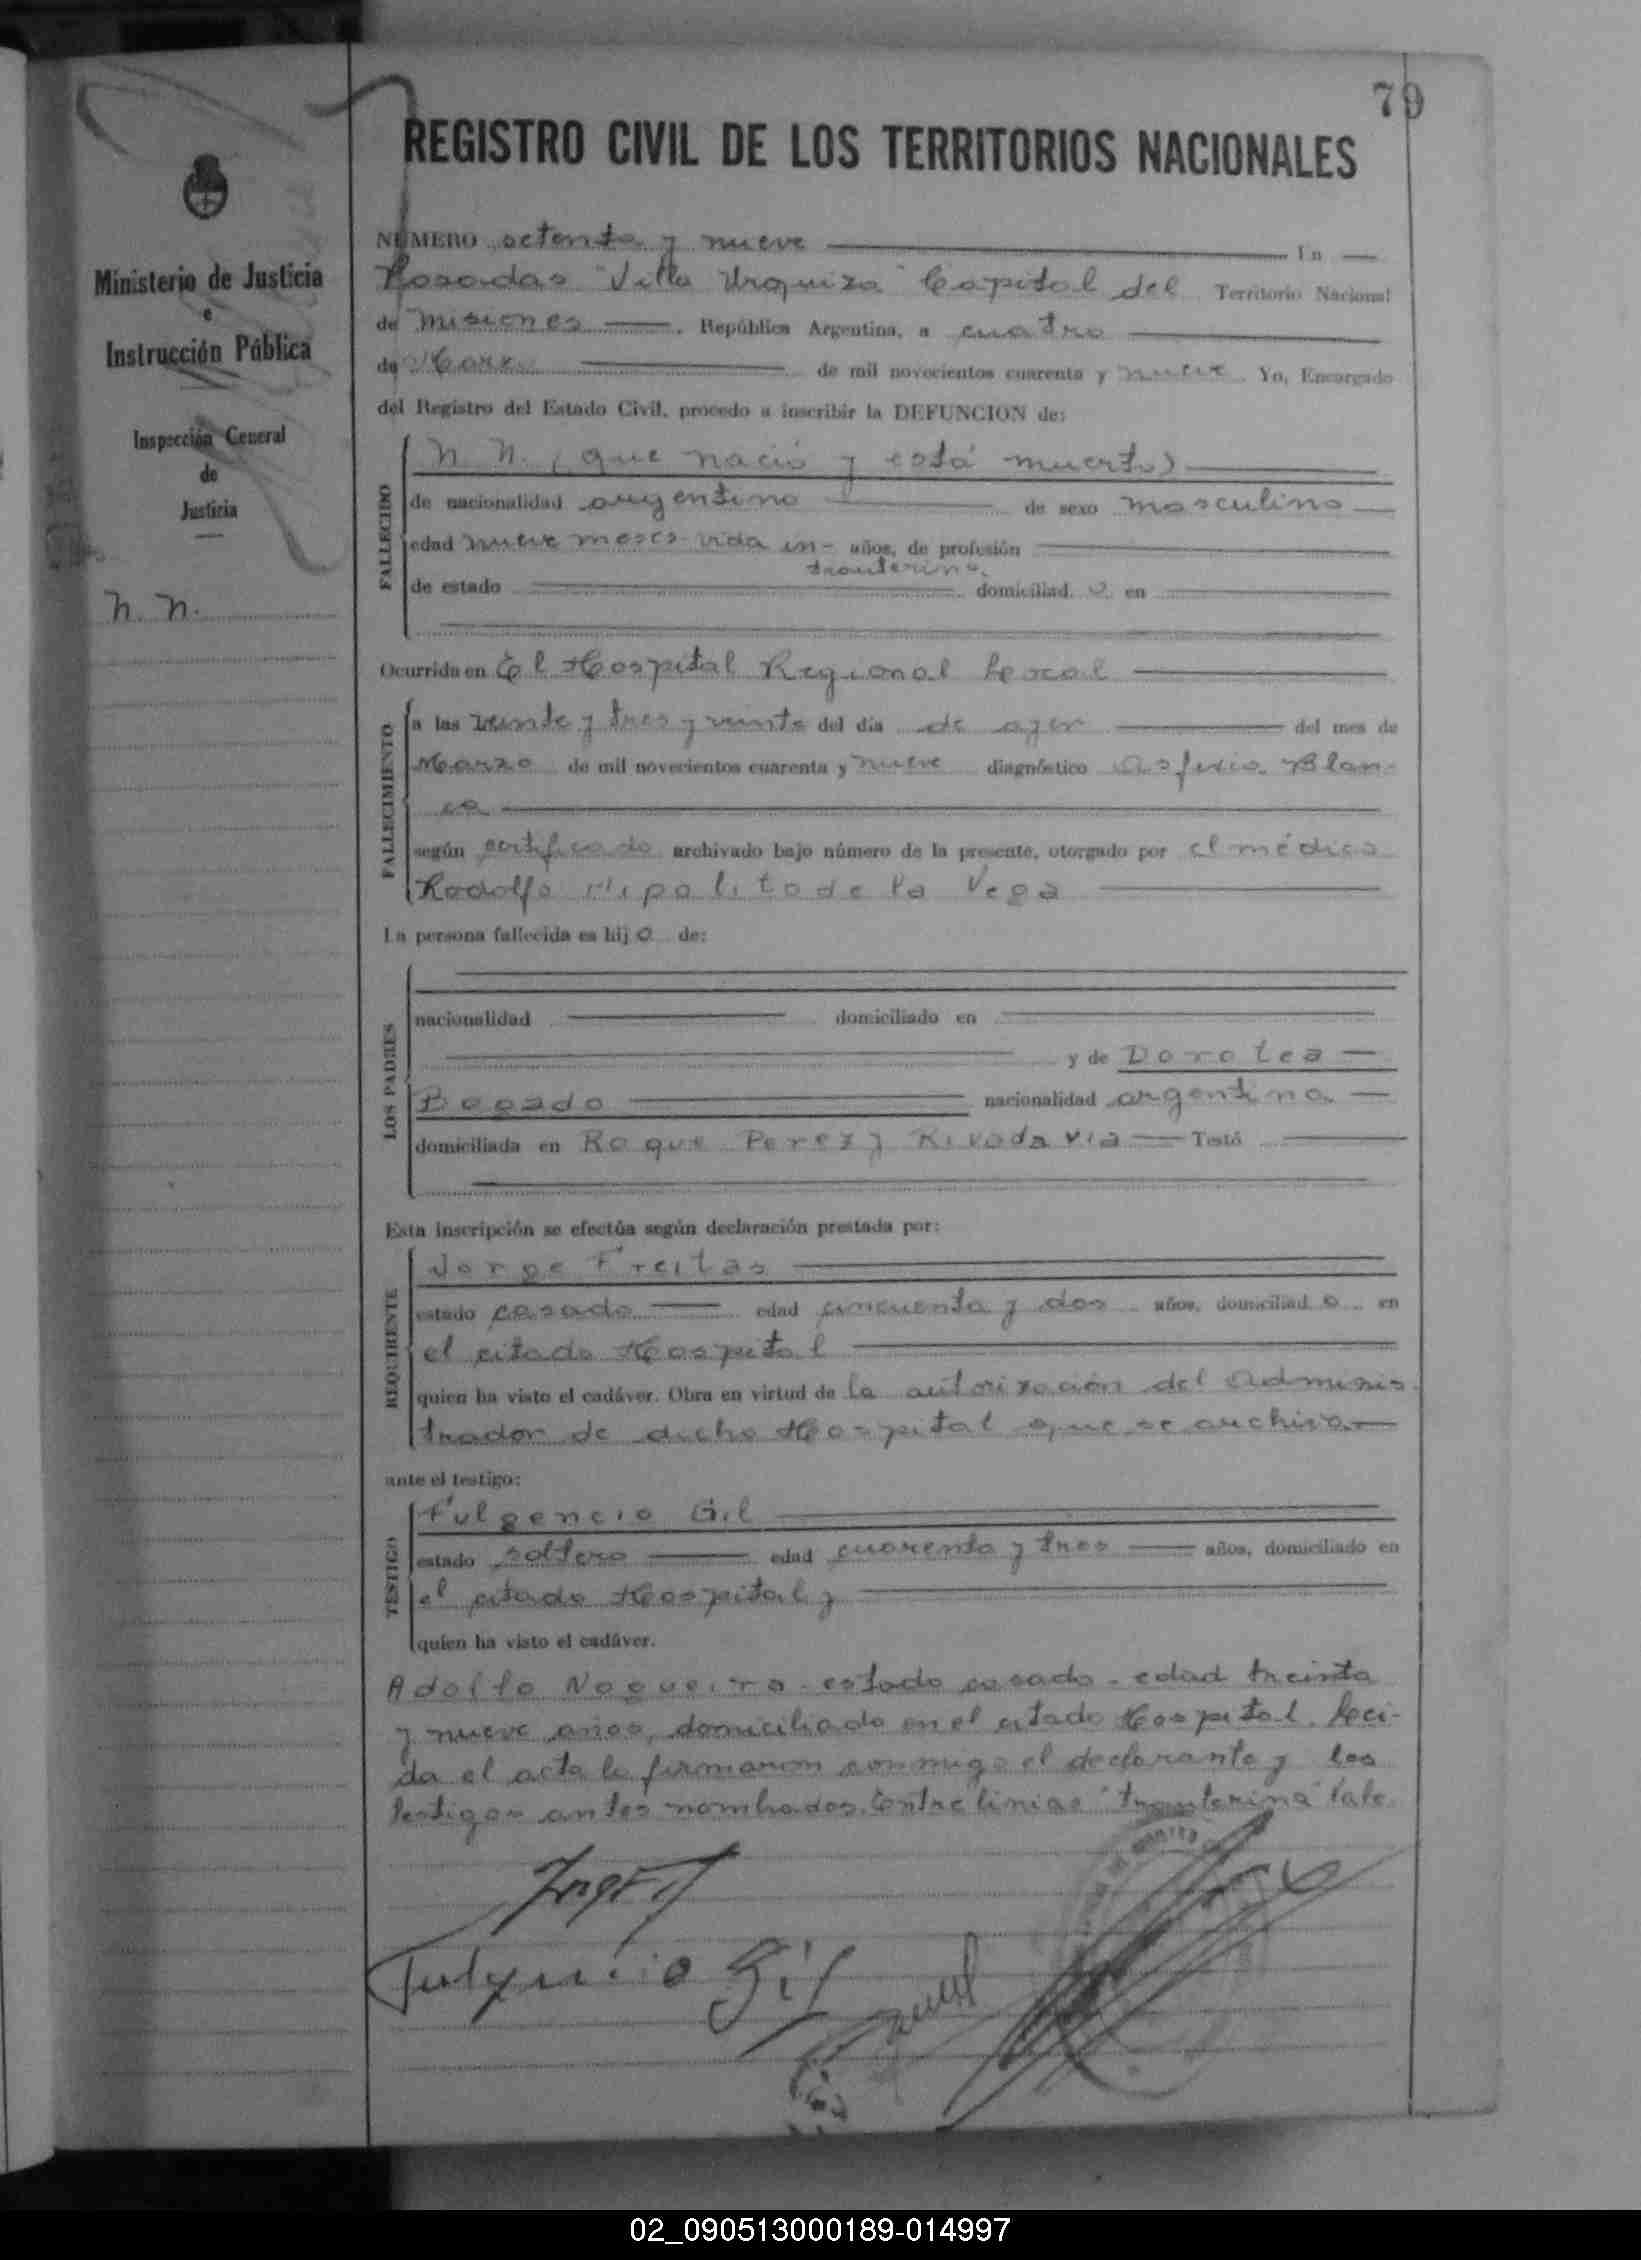 79
REGISTRO CIVIL DE LOS TERRITORIOS NACIONALES
Ministerio de Justicia
e
Instrucción Pública
Inspección General
de
Justicia
N. N.
NUMERO setenta y nueve En
Posadas "Villa Urquiza" Capital del Territorio Nacional
de Misiones República Argentina, a cuatro
de Marzo de mil novecientos cuarenta y nueve Yo, Encargado
del Registro del Estado Civil, procedo a inscribir la DEFUNCION de:
FALLECIDO
N. N. (que nació y está muerto)
de nacionalidad argentino de sexo masculino
edad nueve meses vida in- años, de profesión
trauterina
de estado domiciliad o en
Ocurrida en El Hospital Regional Local
FALLECIMIENTO
a las veinte y tres y veinte del día de ayer del mes de
Marzo de mil novecientos cuarenta y nueve diagnóstico Asfixia Blan-
ca
según certificado archivado bajo número de la presente, otorgado por el médico
Rodolfo Hipolito de la Vega
La persona fallecida es hij o de:
LOS PADRES
nacionalidad domiciliado en
y de Dorotea
Bogado nacionalidad argentina
domiciliada en Roque Perez y Rivadavia Testó
Esta inscripción se efectúa según declaración prestada por:
REQUIRENTE
Jorge Freitas
estado casado edad cincuenta y dos años, domiciliad o en
el citado Hospital
quien ha visto el cadáver. Obra en virtud de la autorización del Adminis
trador de dicho Hospital que se archiva
ante el testigo:
TESTIGO
Fulgencio Gil
estado soltero edad cuarenta y tres años, domiciliado en
el citado Hospital y
quien ha visto el cadáver.
Adolfo Nogueira - estado casado - edad treinta
y nueve años, domiciliado en el citado Hospital. Leí-
da el acta la firmaron conmigo el declarante y los
testigos antes nombrados. Entre linias "trauterina" Vale.
Fulgencio Gil
02_090513000189-014997